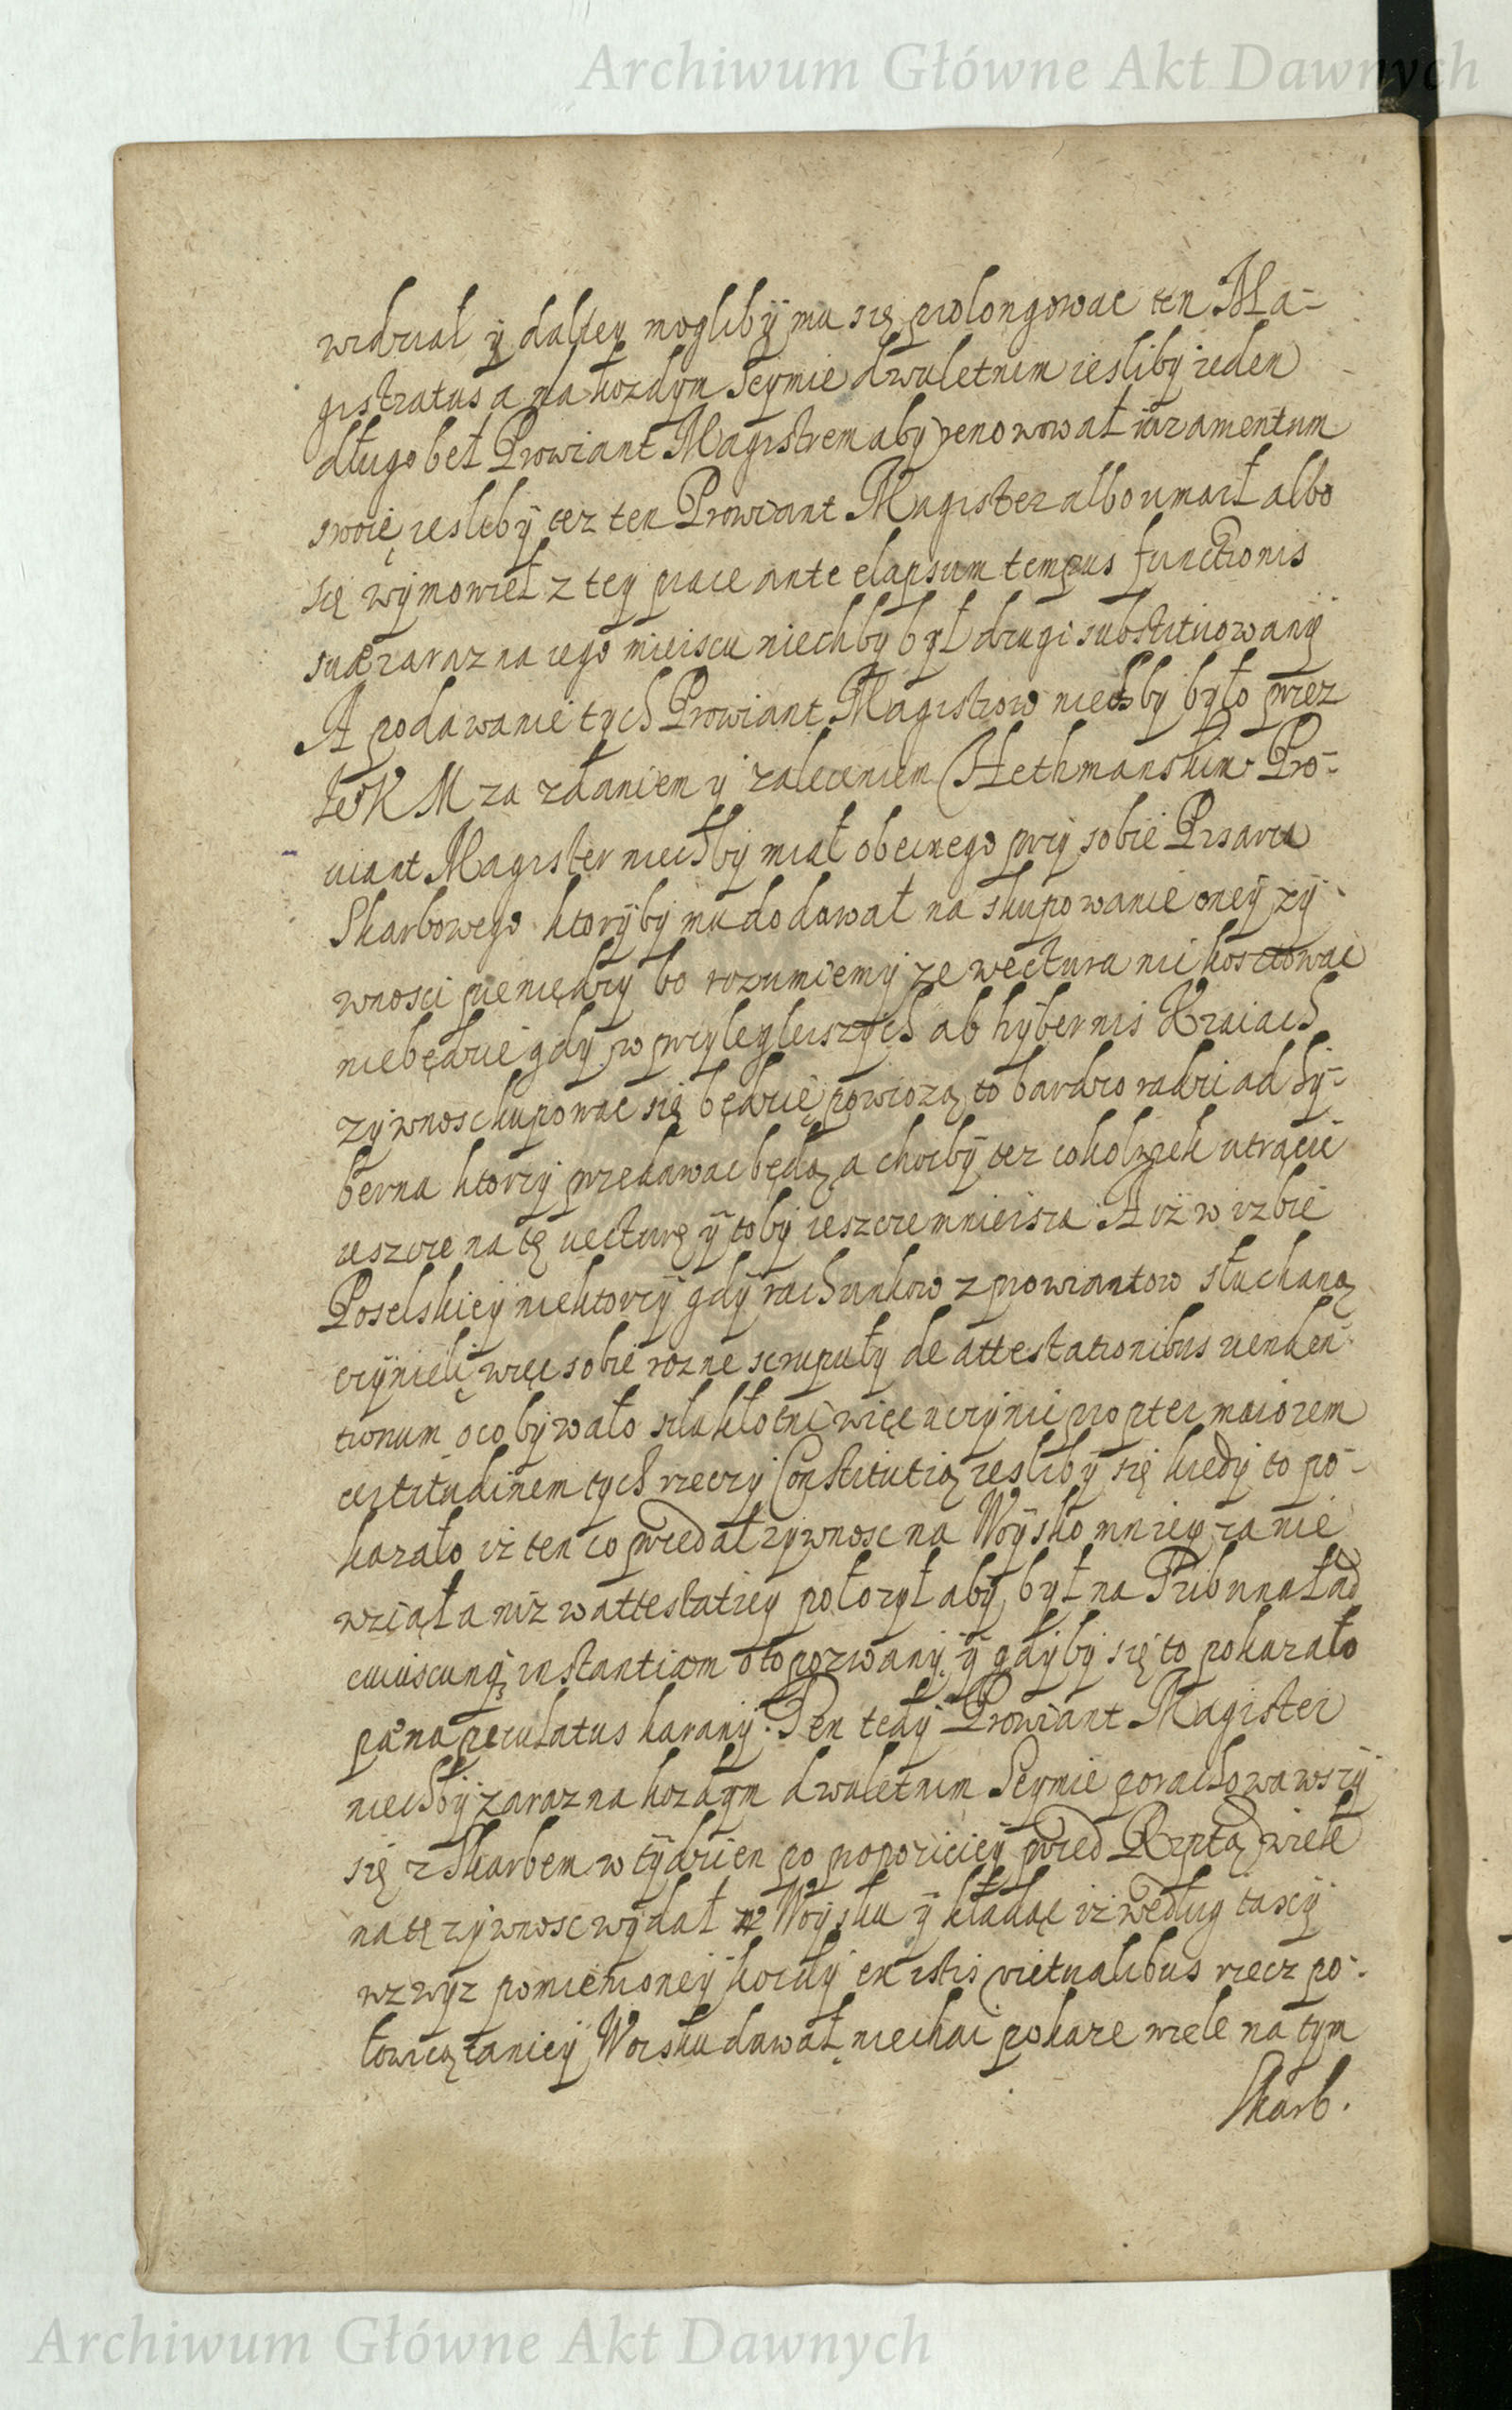 Archiwum Główne Akt Dawnych
widział y daliey mogliby mu się prolongowac ten Ma-
gistratus a na kozdym Seymie dwuletnim iesliby ieden
długo beł Prowiant Magistrem aby renowował iuramentum
swoię iesliby tez ten Prowiant Magister albo umarł albo
się wymowieł z tey prace ante elapsum tempus functionis
suæ zaraz na iego mieiscu niechby był drugi substituowany
A podawanie tych Prowiant Magistrow niechby było przez
JeoKM za zdaniem y zaleceniem Hethmanskim Pro-
uiant Magister niechby miał obecnego przy sobie Pisarza
Skarbowego ktoryby mu dodawał na skupowanie oney zy-
wnosci pieniędzy bo rozumiemy ze wectura nic kosztowac
niebędzie gdy w przylegleiszych ab hybernis Kraiach
zywnosc kupowac się będzie powiozą to bardzo radzi ad hy-
berna ktorzy przedawac będą a chocby tez cokolwiek utracic
ieszcze na tę uecturę y toby ieszcze mnieisza A iż w izbie
Poselskiey niektorzy gdy rachunkow z prowiantow słuchaną
czynieli więc sobie rozne scrupuły de attestationibus uenden-
tionum oco bywało siła kłotni więc uczynic propter maiorem
certitudinem tych rzeczy Constitutią iesliby się kiedy to po-
kazało iż ten co przedał zywnosc na Woysko mniey za nie
wziął a niz w attestatiey połozył aby był na Tribunał ad
cuiuscunq instantiam o to pozwany y gdyby się to pokazało
pæna peculatus karany. Ten tedy Prowiant Magister
niechby zaraz na kozdym dwuletnim Seymie porachowawszy
się z Skarbem w tydzien po propoziciey przed Rzptą wiele
na tę zywnosc wydał Woysku y kładąc iż według taxy
wzwyz pomienioney koczuły ex istis victualibus rzecz po-
łowicą taniey Woisku dawał niechai pokaze wiele na tym
Skarb.
Archiwum Główne Akt Dawnych